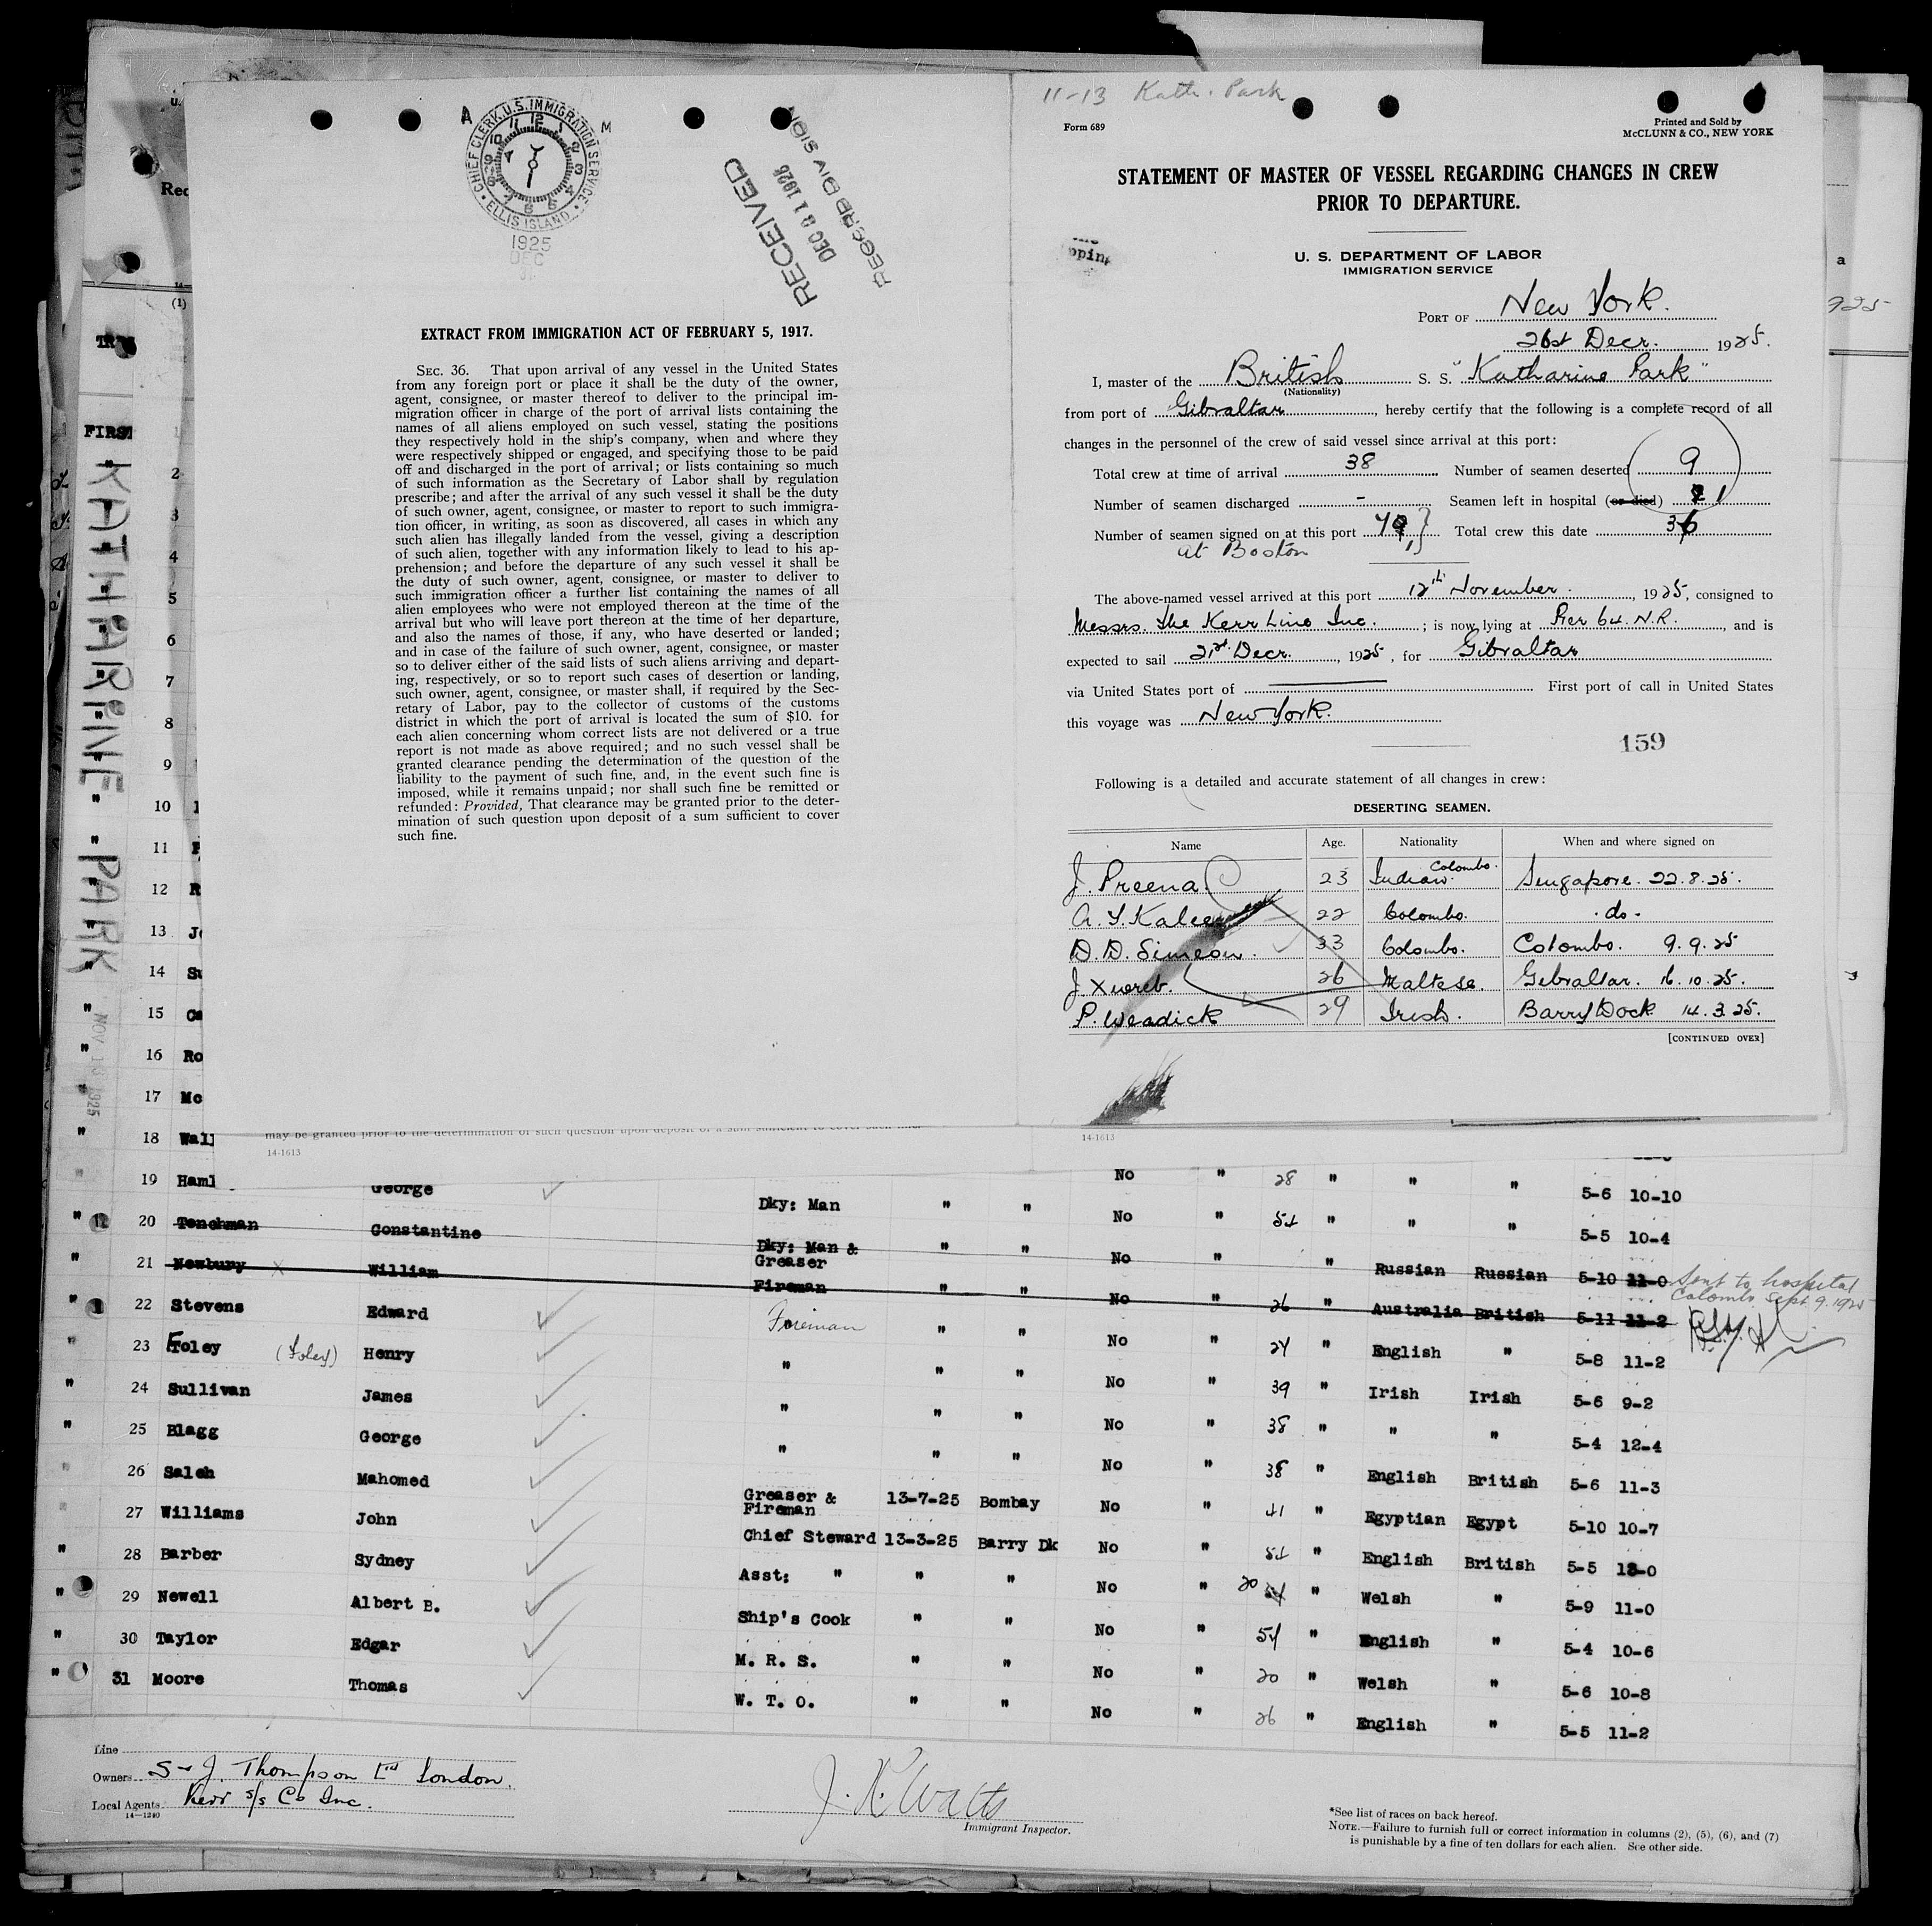 CHIEF CLERK, U.S. IMMIGRATION SERVICE
ELLIS ISLAND
A M
1925
DEC
RECEIVED
DEC 31 1925
RECORD DIVISION
EXTRACT FROM IMMIGRATION ACT OF FEBRUARY 5, 1917.
SEC. 36. That upon arrival of any vessel in the United States
from any foreign port or place it shall be the duty of the owner,
agent, consignee, or master thereof to deliver to the principal im-
migration officer in charge of the port of arrival lists containing the
names of all aliens employed on such vessel, stating the positions
they respectively hold in the ship's company, when and where they
were respectively shipped or engaged, and specifying those to be paid
off and discharged in the port of arrival; or lists containing so much
of such information as the Secretary of Labor shall by regulation
prescribe; and after the arrival of any such vessel it shall be the duty
of such owner, agent, consignee, or master to report to such immigra-
tion officer, in writing, as soon as discovered, all cases in which any
such alien has illegally landed from the vessel, giving a description
of such alien, together with any information likely to lead to his ap-
prehension; and before the departure of any such vessel it shall be
the duty of such owner, agent, consignee, or master to deliver to
such immigration officer a further list containing the names of all
alien employees who were not employed thereon at the time of the
arrival but who will leave port thereon at the time of her departure,
and also the names of those, if any, who have deserted or landed;
and in case of the failure of such owner, agent, consignee, or master
so to deliver either of the said lists of such aliens arriving and depart-
ing, respectively, or so to report such cases of desertion or landing,
such owner, agent, consignee, or master shall, if required by the Sec-
retary of Labor, pay to the collector of customs of the customs
district in which the port of arrival is located the sum of $10. for
each alien concerning whom correct lists are not delivered or a true
report is not made as above required; and no such vessel shall be
granted clearance pending the determination of the question of the
liability to the payment of such fine, and, in the event such fine is
imposed, while it remains unpaid; nor shall such fine be remitted or
refunded: Provided, That clearance may be granted prior to the deter-
mination of such question upon deposit of a sum sufficient to cover
such fine.
11-13 Kath. Park
Form 689
Printed and Sold by
McCLUNN & CO., NEW YORK
STATEMENT OF MASTER OF VESSEL REGARDING CHANGES IN CREW
PRIOR TO DEPARTURE.
U. S. DEPARTMENT OF LABOR
IMMIGRATION SERVICE
PORT OF New York.
21st Decr. 1925.
I, master of the British S. S. "Katharine Park"
(Nationality)
from port of Gibraltar, hereby certify that the following is a complete record of all
changes in the personnel of the crew of said vessel since arrival at this port:
Total crew at time of arrival 38 Number of seamen deserted 9
Number of seamen discharged - Seamen left in hospital (or died) 1
Number of seamen signed on at this port 7 Total crew this date 36
at Boston 1
The above-named vessel arrived at this port 12th November. , 1925, consigned to
Messrs. The Kerr Line Inc. ; is now lying at Pier 64. N.R. , and is
expected to sail 21st Decr. , 1925 , for Gibraltar
via United States port of First port of call in United States
this voyage was New York.
159
Following is a detailed and accurate statement of all changes in crew:
DESERTING SEAMEN.
Name Age. Nationality When and where signed on
J. Preena. 23 Indian. Colombo. Singapore. 22.8.25.
A. S. Kaleen 22 Colombo. . do -
D. D. Simeon. 33 Colombo. Colombo. 9.9.25
J. Xuereb. 26 Maltese. Gibraltar. 16.10.25.
P. Weadick 29 Irish. Barry Dock 14.3.25.
[CONTINUED OVER]
KATHARINE PARK
FIRST
Rec
(1)
2
3
4
5
6
7
8
9
10
11
12 R
13 Jo
14 Su
15 Ca
16 Ro
17 Mc
NOV 13 1925
may be granted prior to the determination of such question upon deposit of a sum sufficient to cover such fine.
14-1613
14-1613
18 Wall
19 Haml George Dky: Man " " No " 28 " " " 5-6 10-10
20 Tenchman Constantine Dky: Man & Greaser " " No " 54 " " " 5-5 10-4
21 Newbury x William Fireman " " No " " Russian Russian 5-10 11-0
Sent to hospital
Colombo Sept 9. 1925
22 Stevens Edward Fireman " " No " 26 " Australia British 5-11 11-2
23 Foley (Foley) Henry " " " No " 24 " English " 5-8 11-2
24 Sullivan James " " " No " 39 " Irish Irish 5-6 9-2
25 Blagg George " " " No " 38 " " " 5-4 12-4
26 Saleh Mahomed Greaser & Fireman 13-7-25 Bombay No " 38 " English British 5-6 11-3
27 Williams John Chief Steward 13-3-25 Barry Dk No " 41 " Egyptian Egypt 5-10 10-7
28 Barber Sydney Asst: " " " No " 54 " English British 5-5 13-0
29 Newell Albert B. Ship's Cook " " No " 20 " Welsh " 5-9 11-0
30 Taylor Edgar M. R. S. " " No " 54 " English " 5-4 10-6
31 Moore Thomas W. T. O. " " No " 20 " Welsh " 5-6 10-8
No " 26 " English " 5-5 11-2
Line
Owners S & J. Thompson Ltd London.
Local Agents Kerr s/s Co Inc.
14-1240
J. K. Watts
Immigrant Inspector.
*See list of races on back hereof.
NOTE.—Failure to furnish full or correct information in columns (2), (5), (6), and (7)
is punishable by a fine of ten dollars for each alien. See other side.